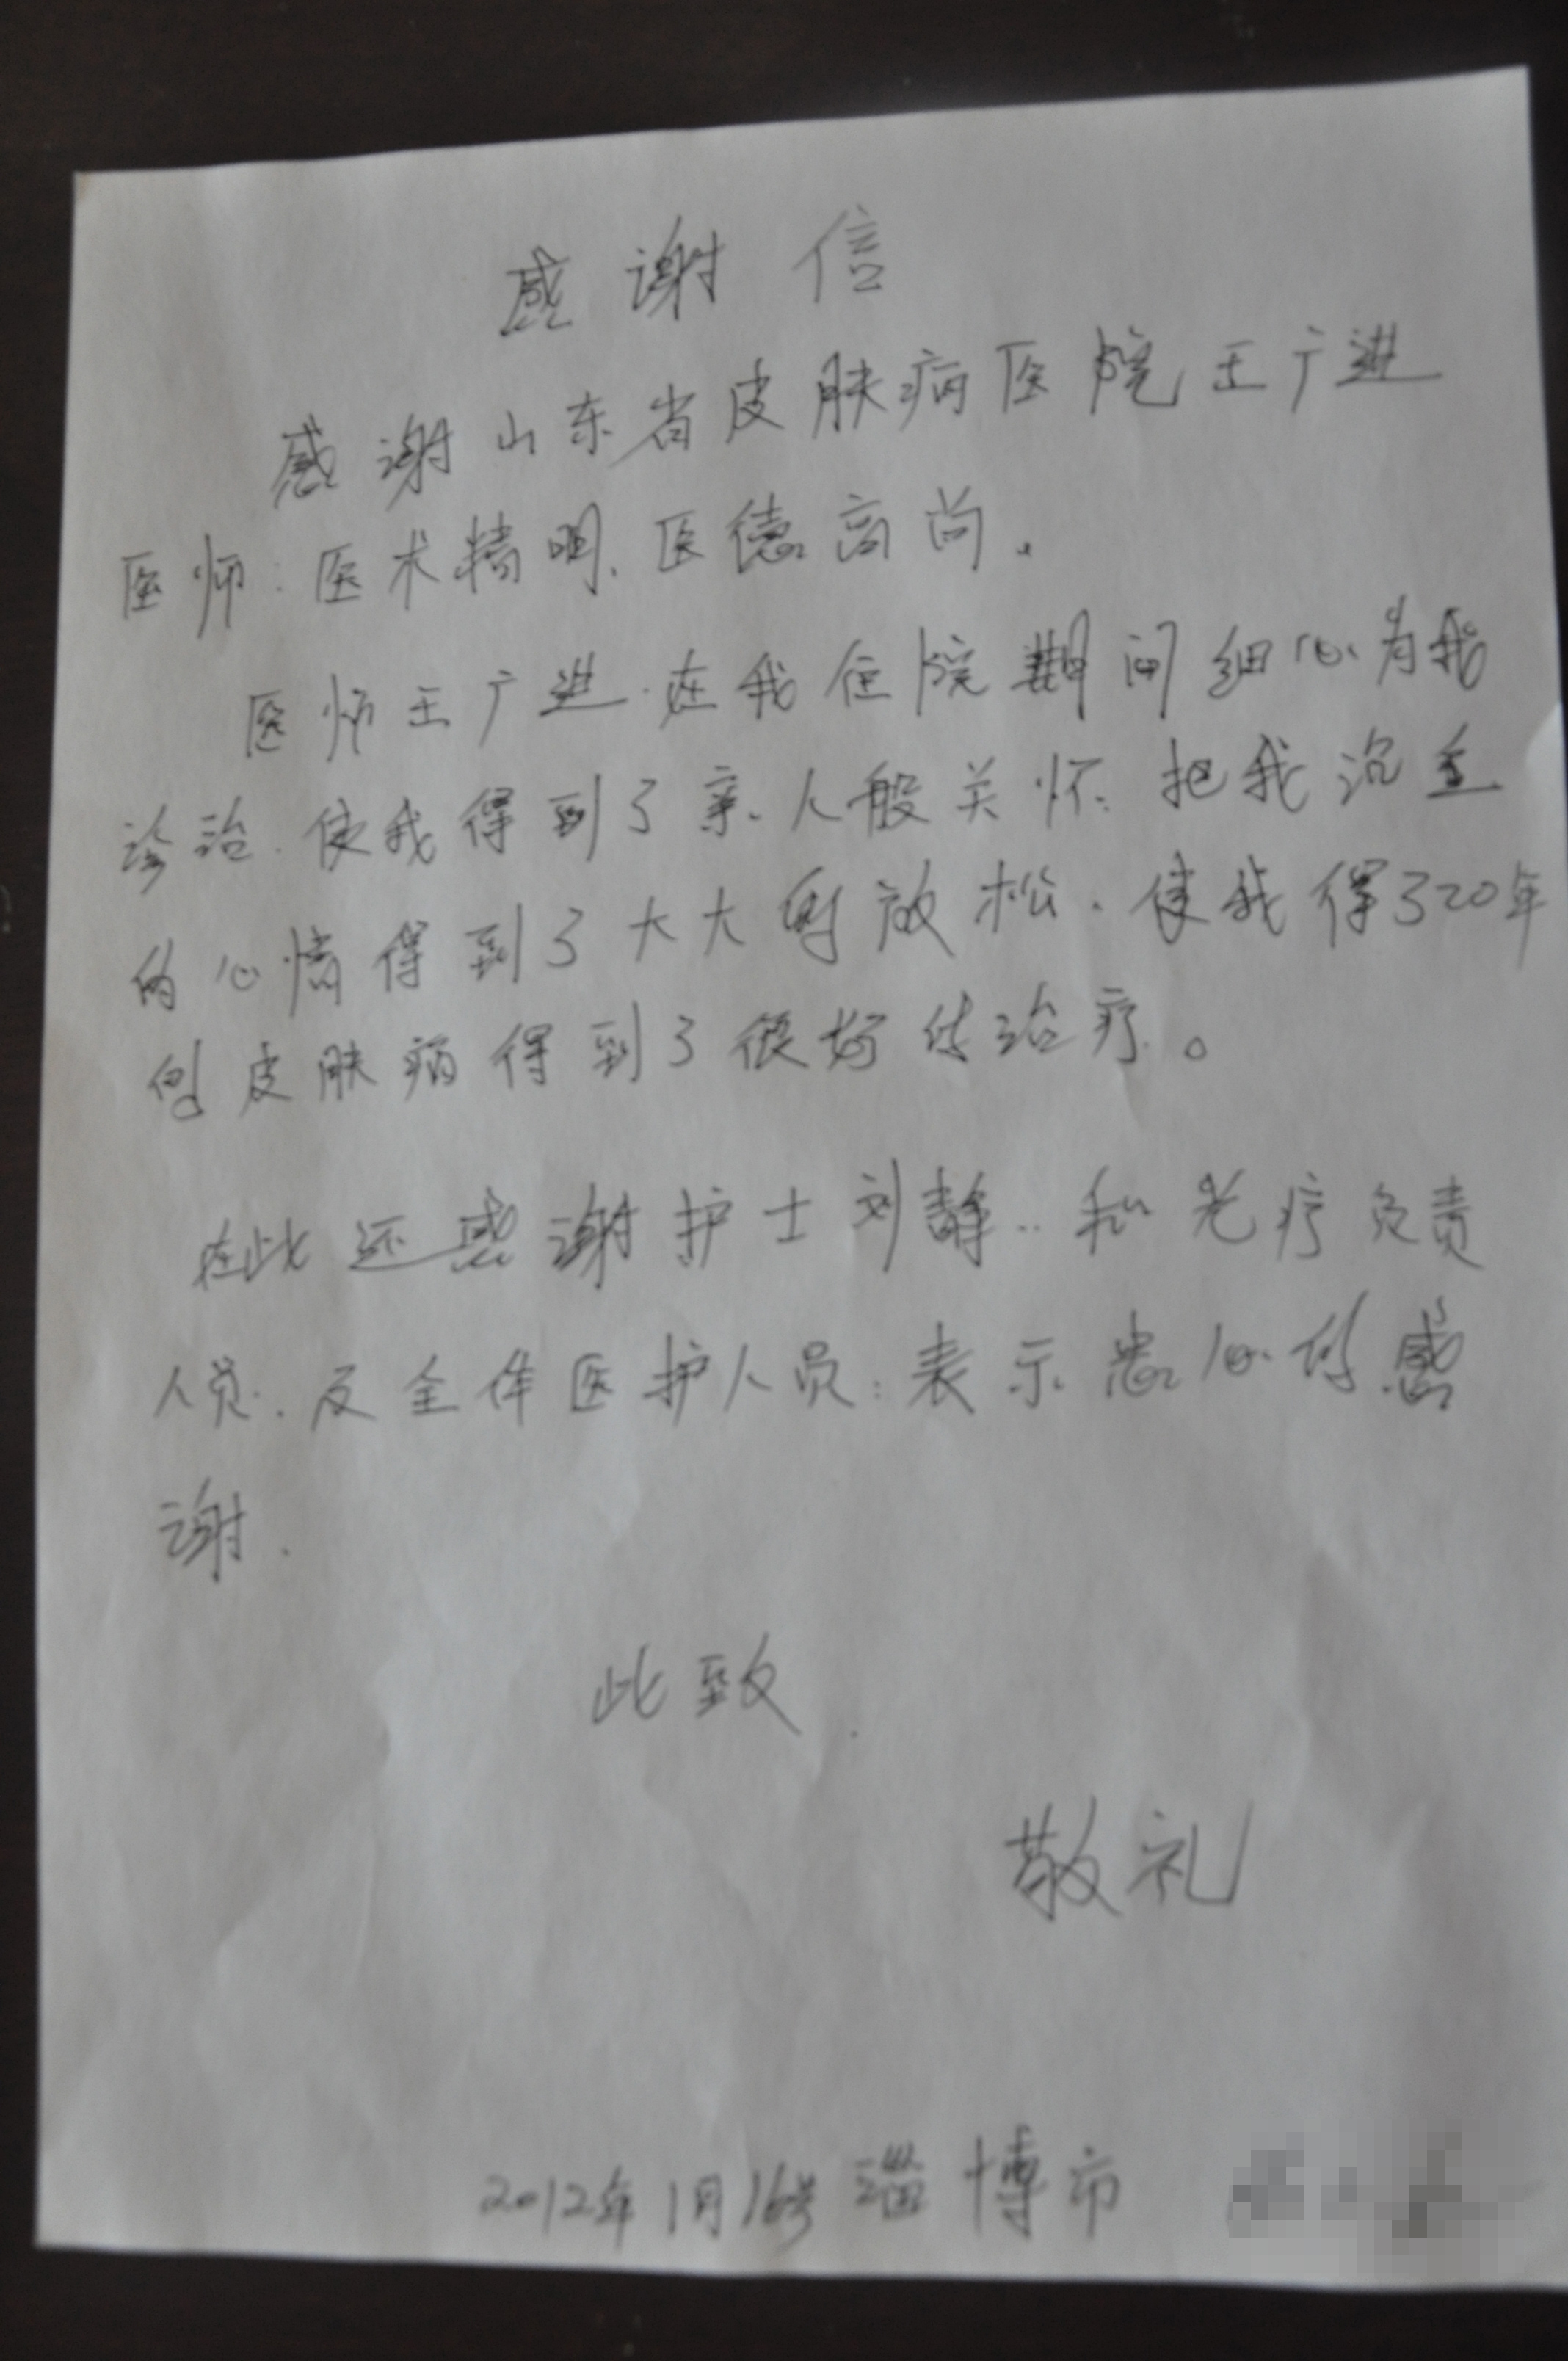 感谢信
感谢山东省皮肤病医院王广进
医师:医术精明、医德高尚.
医师王广进.在我住院期间细心为我
诊治.使我得到了亲人般关怀.把我沉重
的心情得到了大大的放松.使我得了20年
的皮肤病得到了很好的治疗。
在此还感谢护士刘静..和光疗负责
人员.及全体医护人员:表示忠心的感
谢.
此致.
敬礼
2012年1月16号 淄博市